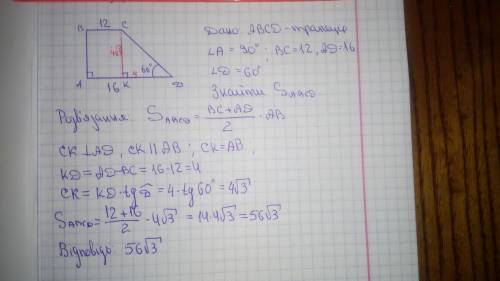 B 12 C
4√3
60°
A K 4 D
16
Дано ABCD - трапеція
∠A = 90°; BC = 12, AD = 16
∠D = 60°
Знайти S ABCD
Розв'язання S ABCD = (BC + AD)/2 · AB
CK ⊥ AD, CK || AB; CK = AB,
KD = AD - BC = 16 - 12 = 4
CK = KD · tg D = 4 · tg 60° = 4√3
S ABCD = (12 + 16)/2 · 4√3 = 14 · 4√3 = 56√3
Відповідь: 56√3